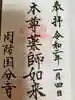 奉拝 令和三年一月四日
本尊薬師如来
周防国分寺